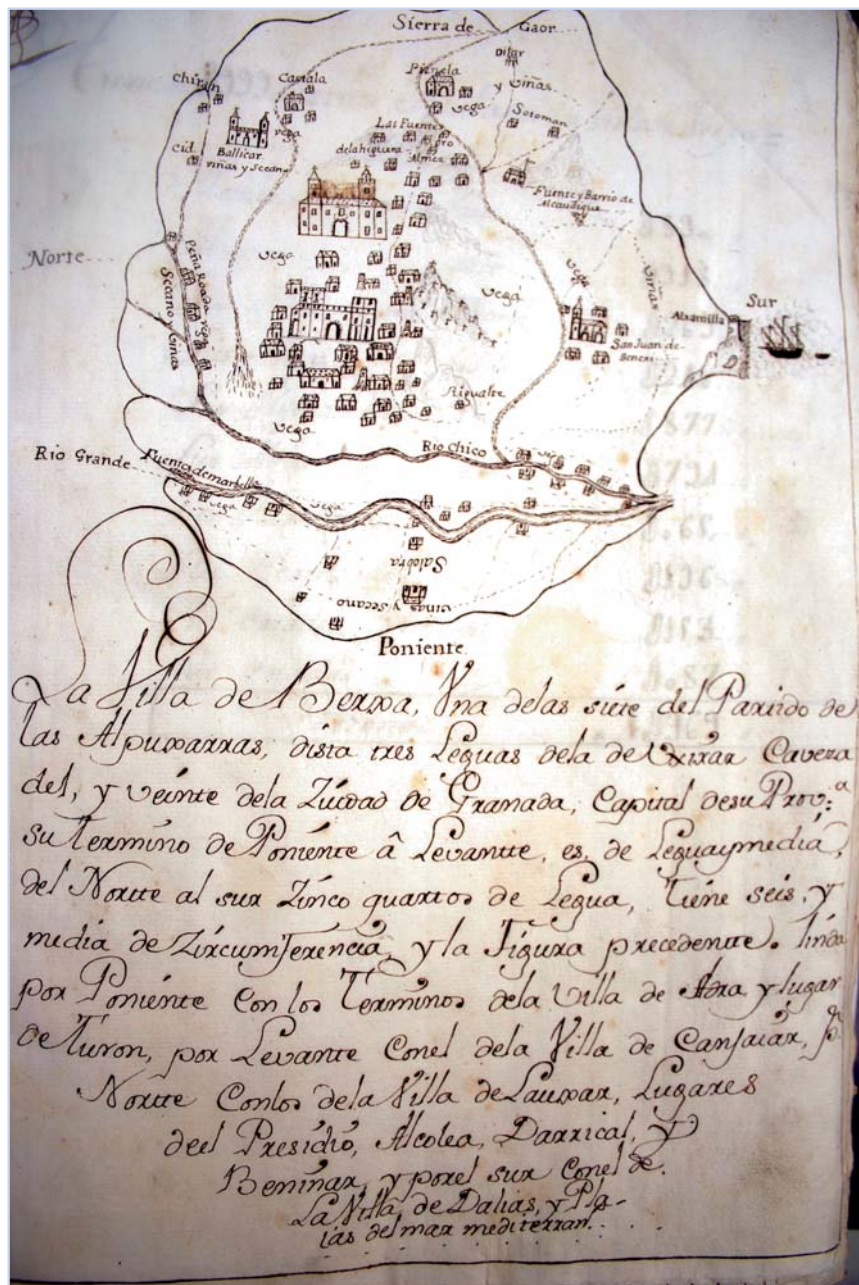 Sierra de Gaor
Chirán
Castala
Pisnela
Dilar
y Viñas
vega
Soroman
Cid
Ballicar
viñas y Secan
vega
Las Fuente
delahiguera
Almez
Fuente y Barrio de
Alcaudique
Norte
Peña Rodada
Secano y Viñas
vega
vega
vega
Viñas
Sur
Alxamilla
San Juan de
Benexi
Rigualte
vega
Rio Chico
Rio Grande
Fuente de marbella
vega
vega
Salobra
viñas y secano
Poniente
La Villa de Berxa, Vna delas siete del Partido de
las Alpuxarras, dista tres Leguas dela de Uxixar Caveza
del, y veinte dela Ziudad de Granada, Capital desu Prov:ª
su Termino de Poniente â Levantte, es, de Leguaymedia,
del Nortte al sur Zinco quartos de Legua, tiene seis, y
media de Zircumferencia, y la Figura precedentte. linda
por Poniente Con los Terminos dela Villa de Adra y lugar
de Turon, por Levante Conel dela Villa de Canjaiár, pr.
Nortte Conlos dela Villa de Lauxar, Lugares
deel Presidio, Alcolea, Darrical, y
Beninar, y porel sur Conel de
La Villa de Dalias, y Pla-
ias del mar mediterran.